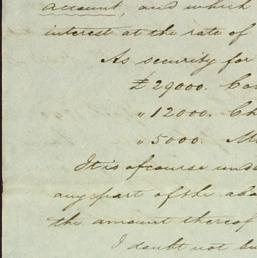 account, and which
interest at the rate of
As security for
£29000. Co
" 12000. Ch
" 5000. M
It is of course unde
any part of the abo
the amount thereof
I doubt not bu